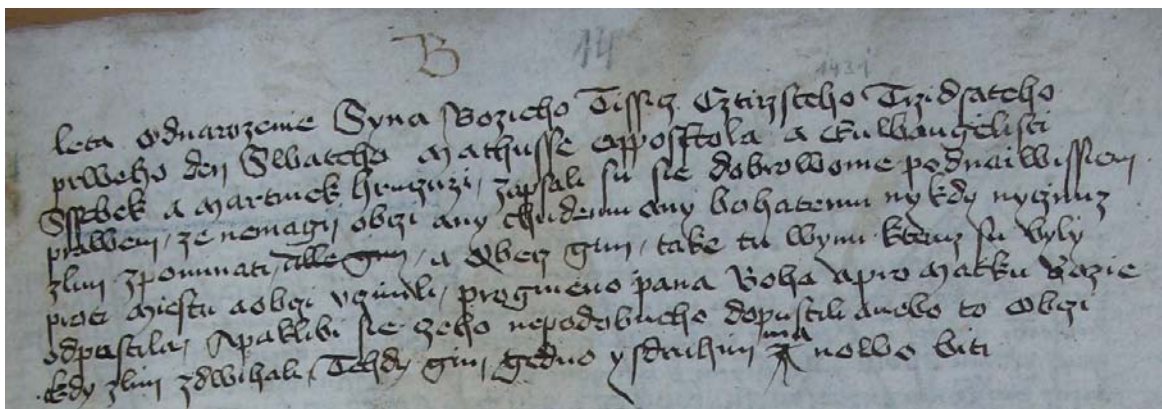 B 14
1431
leta odnarozenie Syna Bozieho Tissicz Cztirzsteho Trzidsateho
prweho den Swateho Mathusse Apposstola a Ewangelisti
Sstbek a Martinek hrnczirzi, zapsali su sie dobrowolnie podnaiwissiem
prawem, ze nemagij obczi any chudemu any bohatemu nykdy nyczimz
zlim zpominati, alle gim, a Obecz gim, take tu wynu kteruz su byly
proti Miestu aobczi vczinili, progmeno pana Boha apro Matku Bozie
odpustila, Apaklibi sie czeho nepodobneho dopustili anebo to Obczi
kdy zlim zdwihali, Tehdy gim gedno y sdruhim ma nowo biti